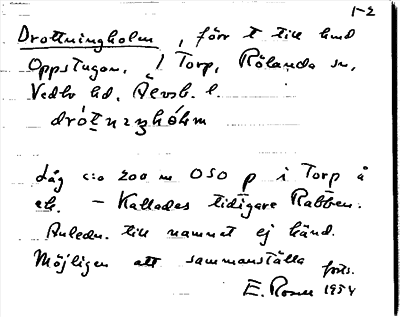 1-2
Drottningholm, förr t till hmd
Oppstugan, 1/ Torp, Rölanda sn,
Vedbo hd, Älvsb. l.
Låg c:a 200 m OSO p i Torp å
ek. – Kallades tidigare Rabben.
Anledn. till namnet ej känd.
Möjligen att sammanställa
forts.
E. Rosen 1954